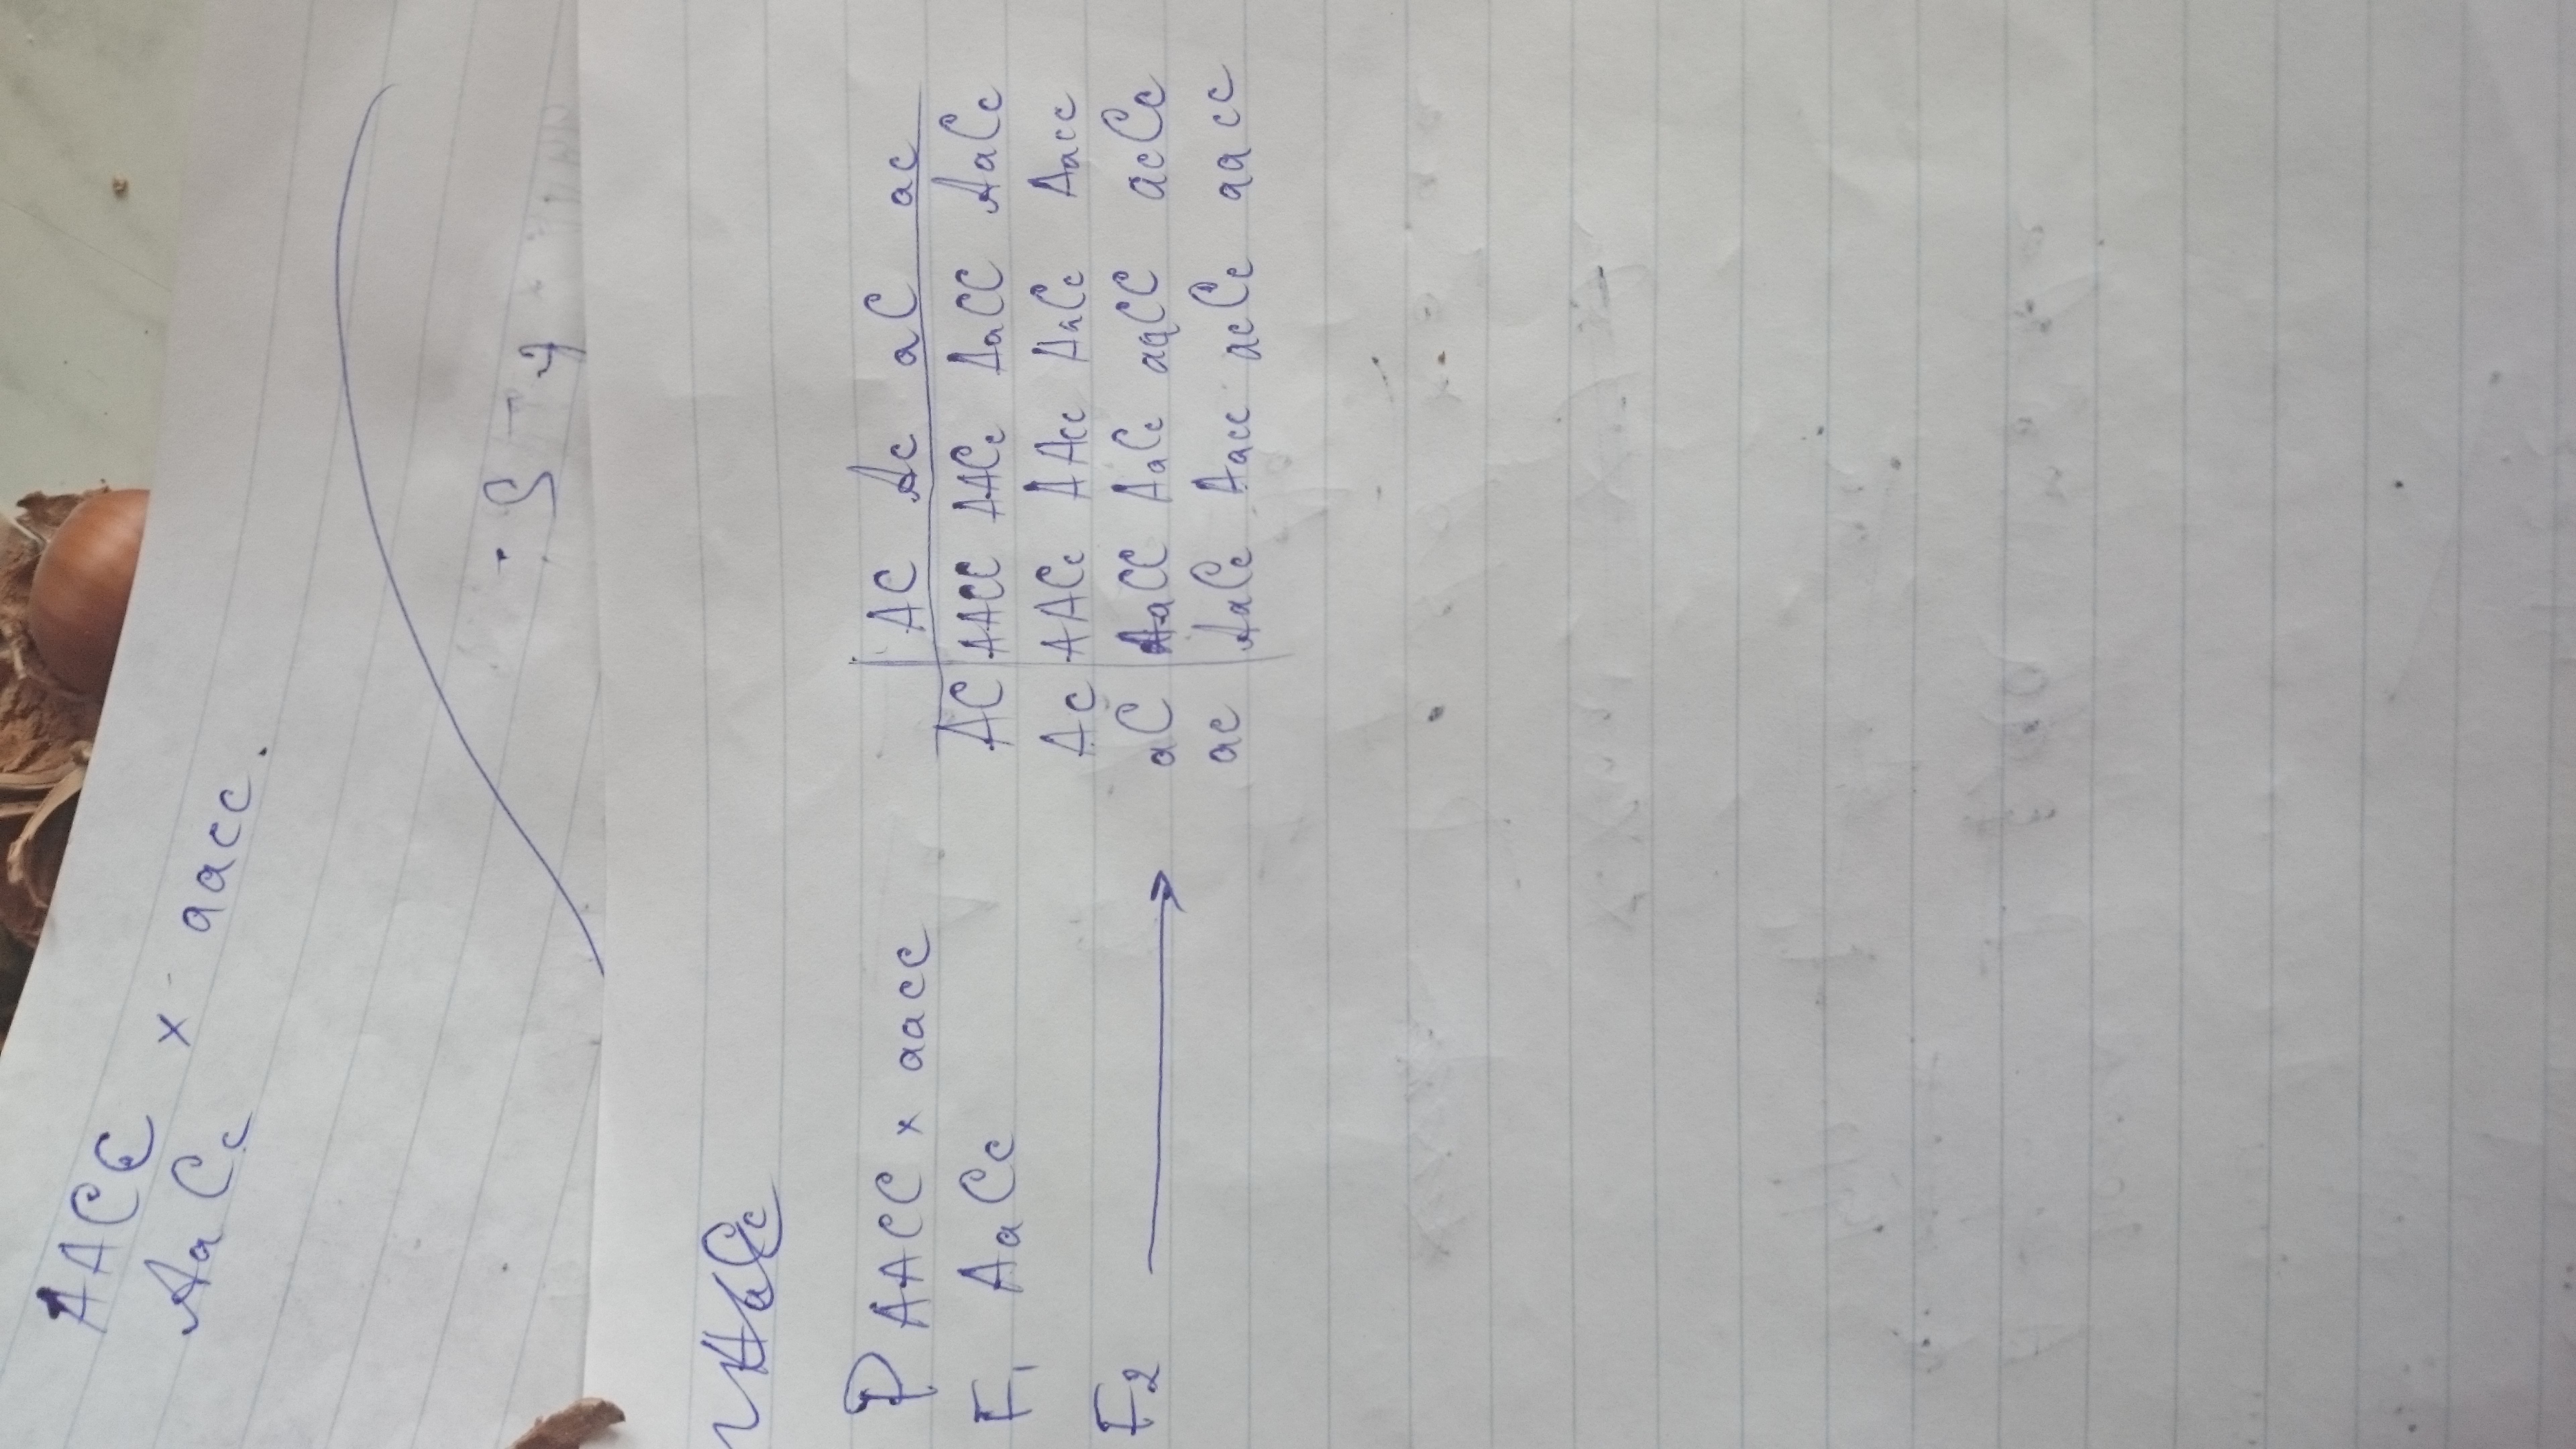 AACC x aacc.
AaCc
AaCc
P AACC x aacc
F1 AaCc
F2
AC Ac aC ac
AC AACC AACc AaCC AaCc
Ac AACc AAcc AaCc Aacc
aC AaCC AaCc aaCC acCc
ac AaCc Aacc acCc aacc